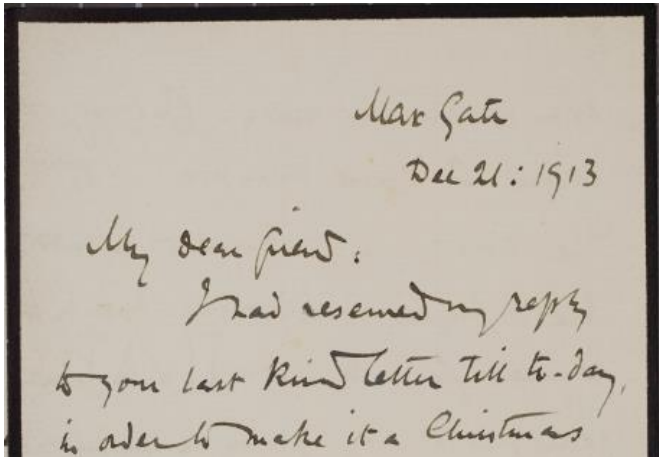 Max Gate
Dec 21: 1913
My dear friend:
I had reserved my reply
to your last kind letter till to-day,
in order to make it a Christmas